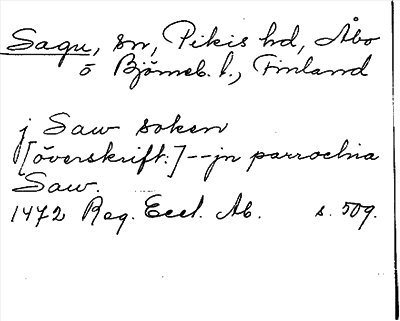 Sagu, sn, Pikis hd, Åbo
o Björneb. l., Finland
j Saw soken
[överskrift:] -- jn parrochia
Saw.
1472 Reg. Eccl. Ab. s. 509.